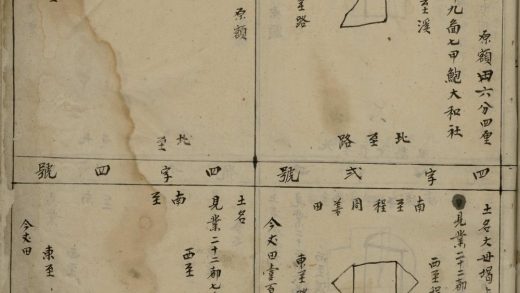 至溪
原額田六分四厘
九啚七甲鮑大和社
至路
北至路
原額
北至
四字弍號
四字四號
土名大母塌
見業二十二都
南至程周善田
西至程
今丈田壹百
土名
見業二十二都七
南至
西至
東至
今丈田